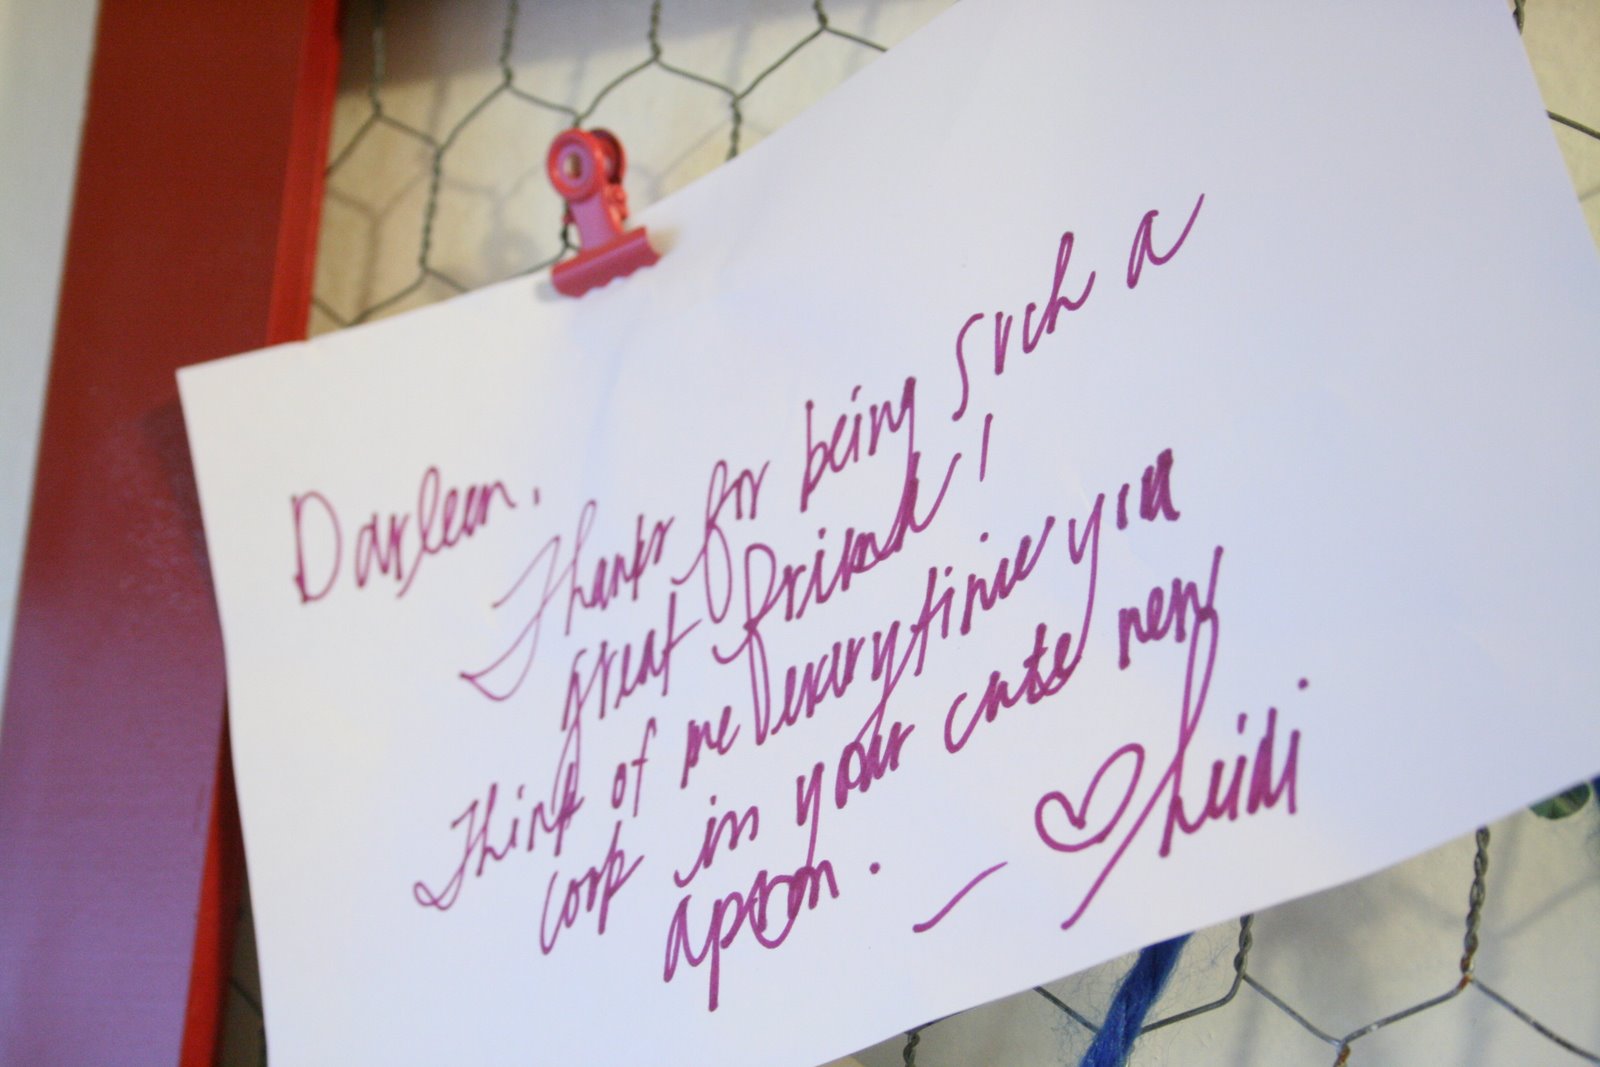 Darleen,
Thanks for being such a
great friend!
Think of me everytime you
cook in your cute new
apron.
— ♡ Heidi